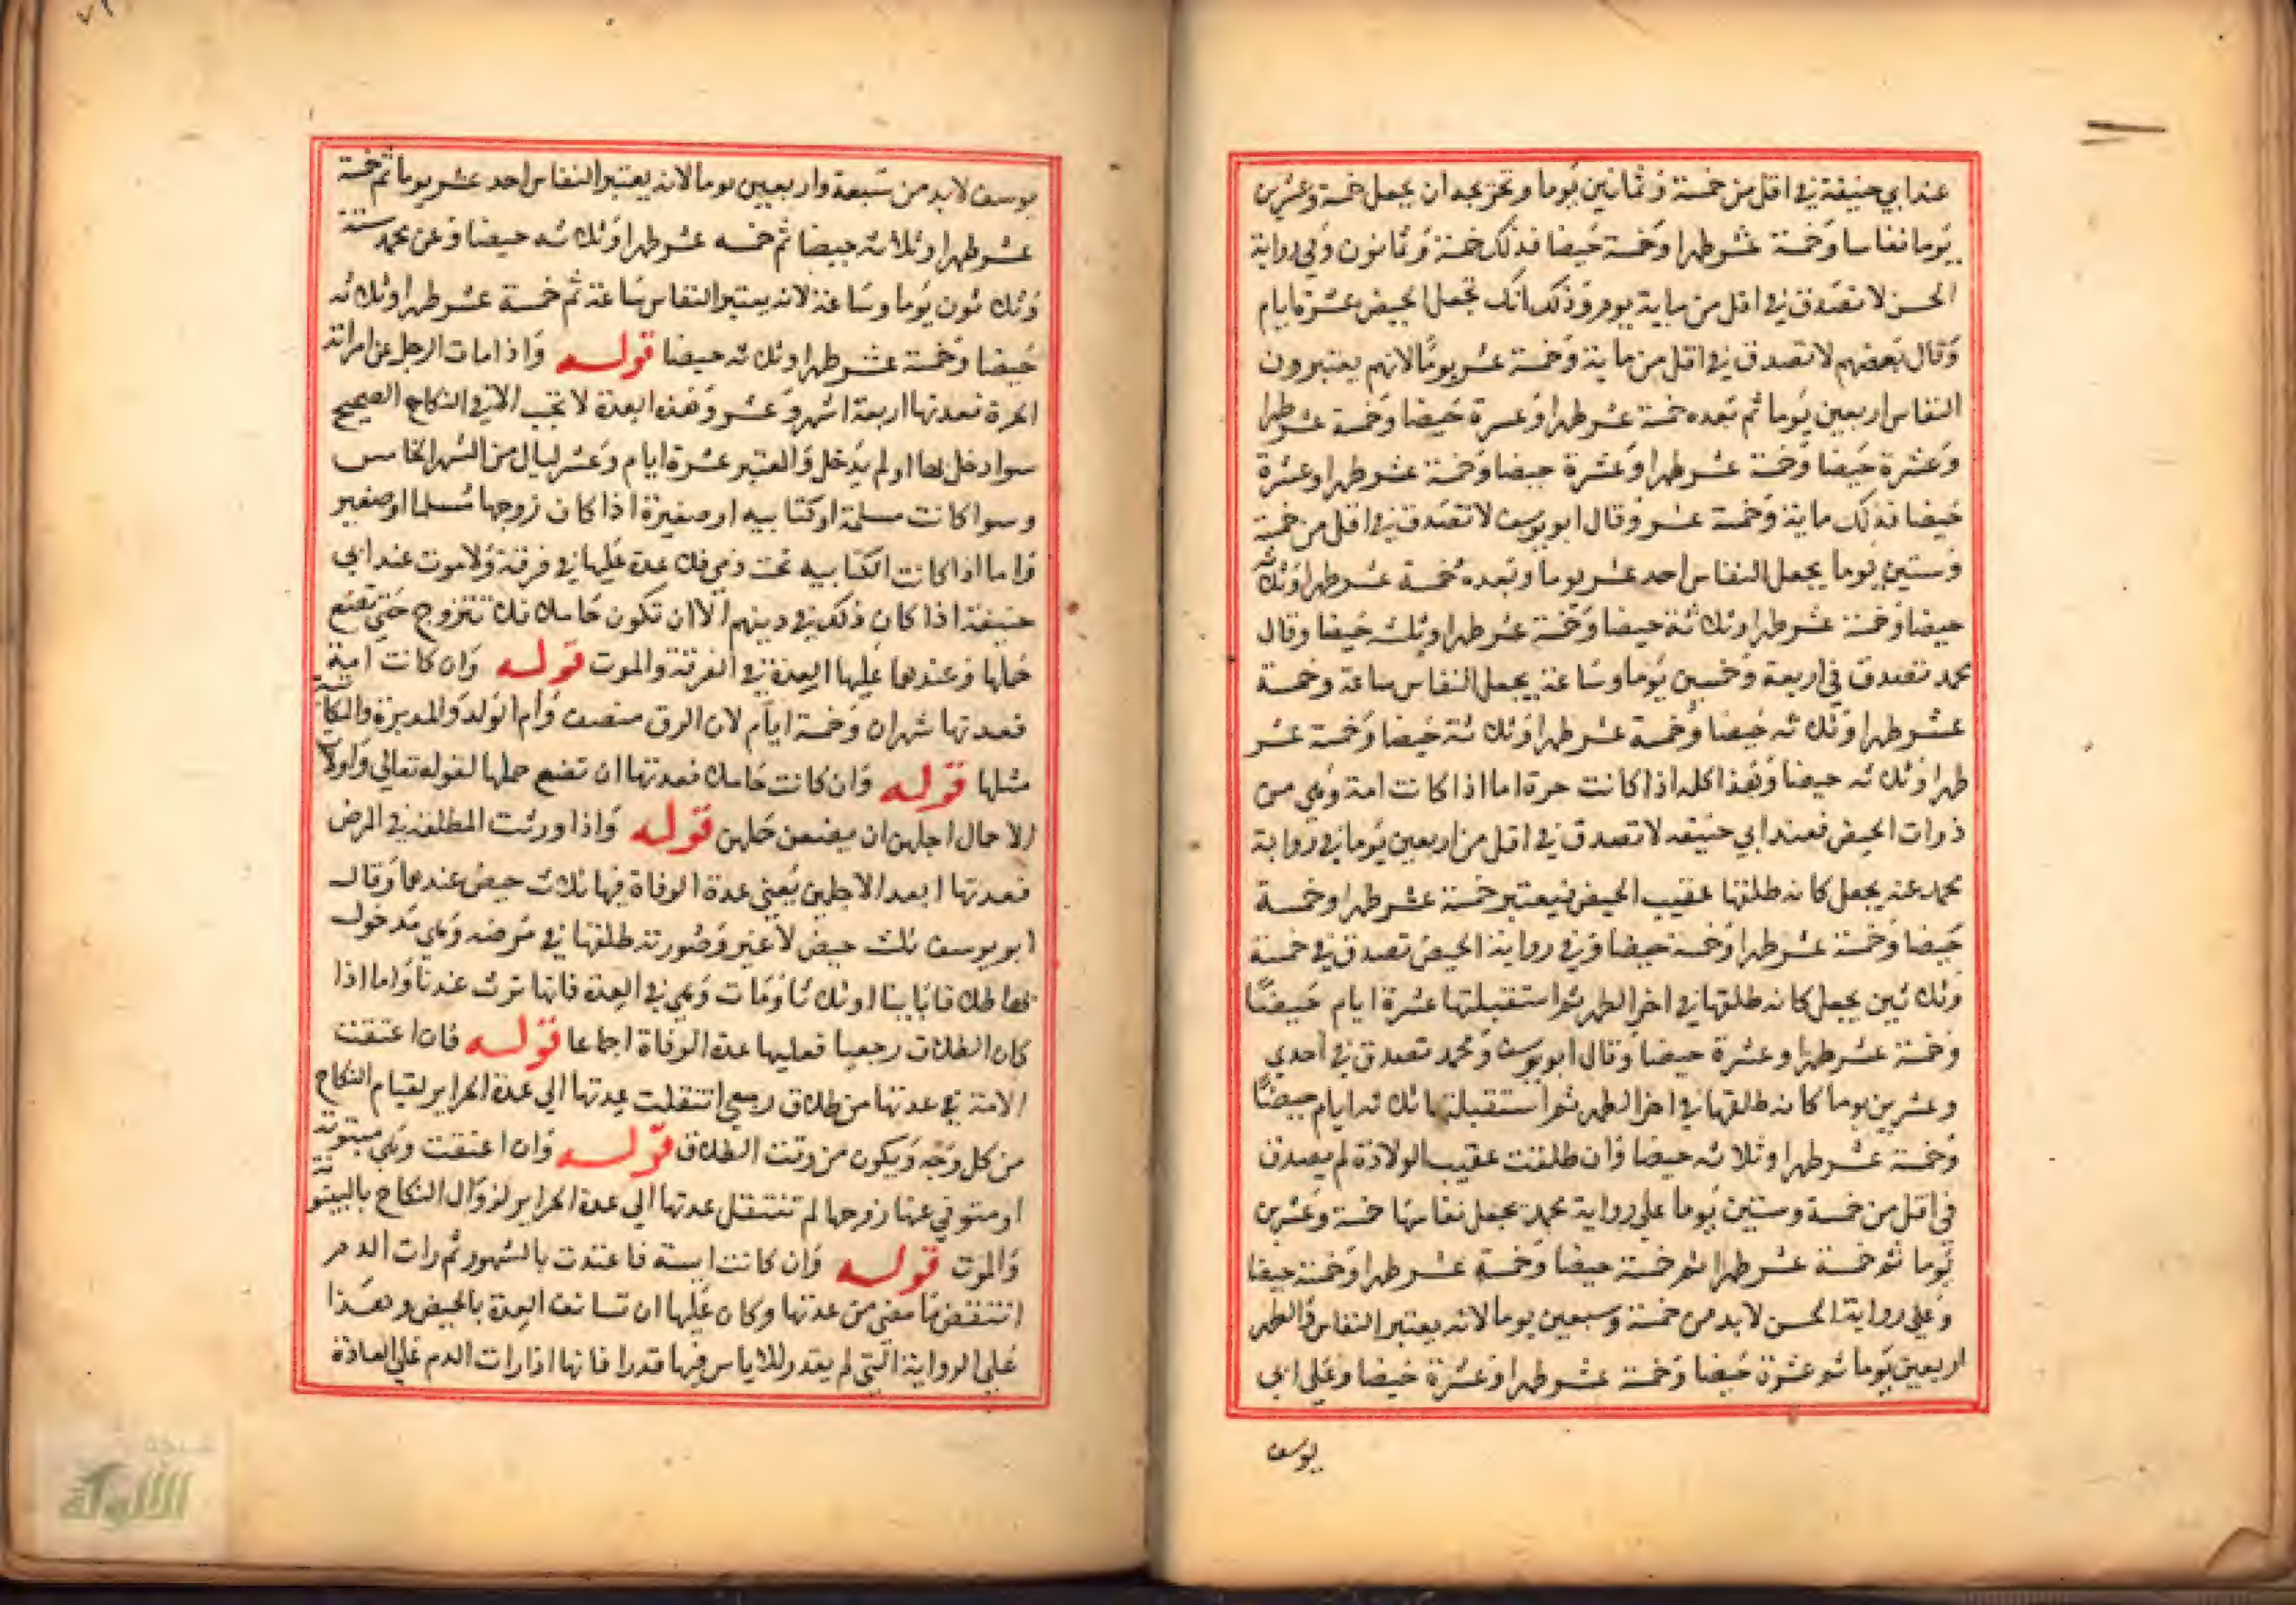 عند ابي حنيفة في اقل من خمسة وثمانين يوما وتخريجه ان يجعل خمسة وعشرين
يوما نفاسا وخمسة عشر طهرا وخمسة حيضا فذلك خمسة وثمانون وفي رواية
الحسن لا تصدق في اقل من ماية يوم وذلك انك تجعل الحيض عشرة ايام
وقال بعضهم لا تصدق في اقل من ماية وخمسة عشر يوما لانهم يعتبرون
النفاس اربعين يوما ثم بعده خمسة عشر طهرا وعشرة حيضا وخمسة عشر طهرا
وعشرة حيضا وخمسة عشر طهرا وعشرة حيضا وخمسة عشر طهرا وعشرة
حيضا فذلك ماية وخمسة عشر وقال ابو يوسف لا تصدق في اقل من خمسة
وستين يوما يجعل النفاس احد عشر يوما وبعده خمسة عشر طهرا وثلاثة
حيضا وخمسة عشر طهرا وثلاثة حيضا وخمسة عشر طهرا وثلاث حيضا وقال
محمد تصدق في اربعة وخمسين يوما وساعة يجعل النفاس ساعة وخمسة
عشر طهرا وثلاثه حيضا وخمسة عشر طهرا وثلاثة حيضا وخمسة عشر
طهرا وثلاثه حيضا وهذا كله اذا كانت حرة اما اذا كانت امة وهي من
ذوات الحيض فعند ابي حنيفه لا تصدق في اقل من اربعين يوما في رواية
محمد عنه يجعل كانه طلقها عقيب الحيض فيعتبر خمسة عشر طهرا وخمسة
حيضا وخمسة عشر طهرا وخمسة حيضا وفي رواية الحيض تصدق في خمسة
وثلاثين يجعل كانه طلقها في اخر الطهر ثم استقبلتها عشرة ايام حيضا
وخمسة عشر طهرا وعشرة حيضا وقال ابو يوسف ومحمد تصدق في احدي
وعشرين يوما كانه طلقها في اخر الطهر ثم استقبلتها ثلاثه ايام حيضا
وخمسة عشر طهرا وثلاثه حيضا وان طلقت عقيب الولادة لم يصدق
في اقل من خمسة وستين يوما علي رواية محمد يجعل نفاسها خمسة وعشرين
يوما ثم خمسة عشر طهرا ثم خمسة حيضا وخمسة عشر طهرا وخمسة حيضا
وعلي رواية الحسن لا بد من خمسة وسبعين يوما لانه يعتبر النفاس والطهر
اربعين يوما ثم عشرة حيضا وخمسة عشر طهرا وعشرة حيضا وعلي ابي
يوسف
يوسف لا بد من سبعة واربعين يوما لانه يعتبر النفاس احد عشر يوما ثم خمسة
عشر طهرا وثلاثه حيضا ثم خمسه عشر طهرا وثلاثه حيضا وعن محمد ستة
وثلاثون يوما وساعة لانه يعتبر النفاس ساعة ثم خمسة عشر طهرا وثلاثه
حيضا وخمسة عشر طهرا وثلاثه حيضا قوله واذا مات الرجل عن امراته
الحرة فعدتها اربعة اشهر وعشر وهذه العدة لا تجب الا في النكاح الصحيح
سوا دخل بها او لم يدخل والمعتبر عشرة ايام وعشر ليال من الشهر الخامس
وسوا كانت مسلمة او كتابيه او صغيرة اذا كان زوجها مسلما او صغير
واما اذا كانت الكتابيه تحت ذمي فلا عدة عليها في فرقة ولا موت عند ابي
حنيفة اذا كان ذلك في دينهم الا ان تكون حاملا فلا تتزوج حتي تضع
حملها وعندهما عليها العدة في الفرقة والموت قوله وان كانت امة
فعدتها شهران وخمسة ايام لان الرق منصف وام الولد والمدبرة والمكاتبة
مثلها قوله وان كانت حاملا فعدتها ان تضع حملها لقوله تعالي واولات
الاحمال اجلهن ان يضعن حملهن قوله واذا ورثت المطلقة في المرض
فعدتها ابعد الاجلين يعني عدة الوفاة فيها ثلاث حيض عندهما وقال
ابو يوسف ثلث حيض لا غير وصورته طلقها في مرضه وهي مدخول
بها طلاقا باينا او ثلاثا ومات وهي في العدة فانها ترث عندنا واما اذا
كان الطلاق رجعيا فعليها عدة الوفاة اجماعا قوله فان اعتقت
الامة في عدتها من طلاق رجعي انتقلت عدتها الي عدة الحراير لقيام النكاح
من كل وجه ويكون من وقت الطلاق قوله وان اعتقت وهي مبتوتة
او متوفي عنها زوجها لم تنتقل عدتها الي عدة الحراير لزوال النكاح بالبيتوتة
والموت قوله وان كانت ايسة فاعتدت بالشهور ثم رات الدم
انتقض ما مضي من عدتها وكان عليها ان تستانف العدة بالحيض وهذا
علي الرواية التي لم يقدر للاياس فيها قدرا فانها اذا رات الدم علي العادة
شبكة
الألوكة